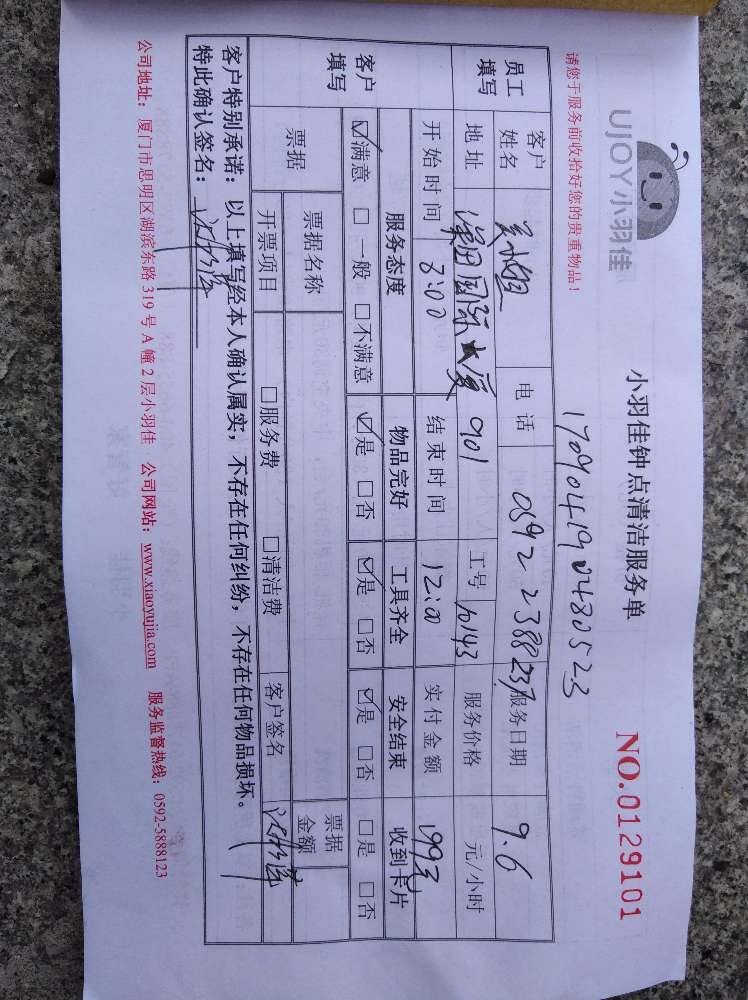 UJOY小羽佳
小羽佳钟点清洁服务单
NO.0129101
请您于服务前收拾好您的贵重物品！
员工填写
客户姓名 电话 0592 2388237 服务日期 9.6
地址 国际大厦 901 工号 10143 服务价格 元/小时
开始时间 8:00 结束时间 12:00 实付金额
客户填写
服务态度 物品完好 工具齐全 安全结束 收到卡片
☑满意 □一般 □不满意 ☑是 □否 ☑是 □否 ☑是 □否 □是 □否
票据 票据名称 票据金额
开票项目 □服务费 □清洁费 客户签名
客户特别承诺：以上填写经本人确认属实，不存在任何纠纷，不存在任何物品损坏。
特此确认签名：
公司地址：厦门市思明区湖滨东路319号A幢2层小羽佳 公司网站：www.xiaoyujia.com 服务监督热线：0592-5888123